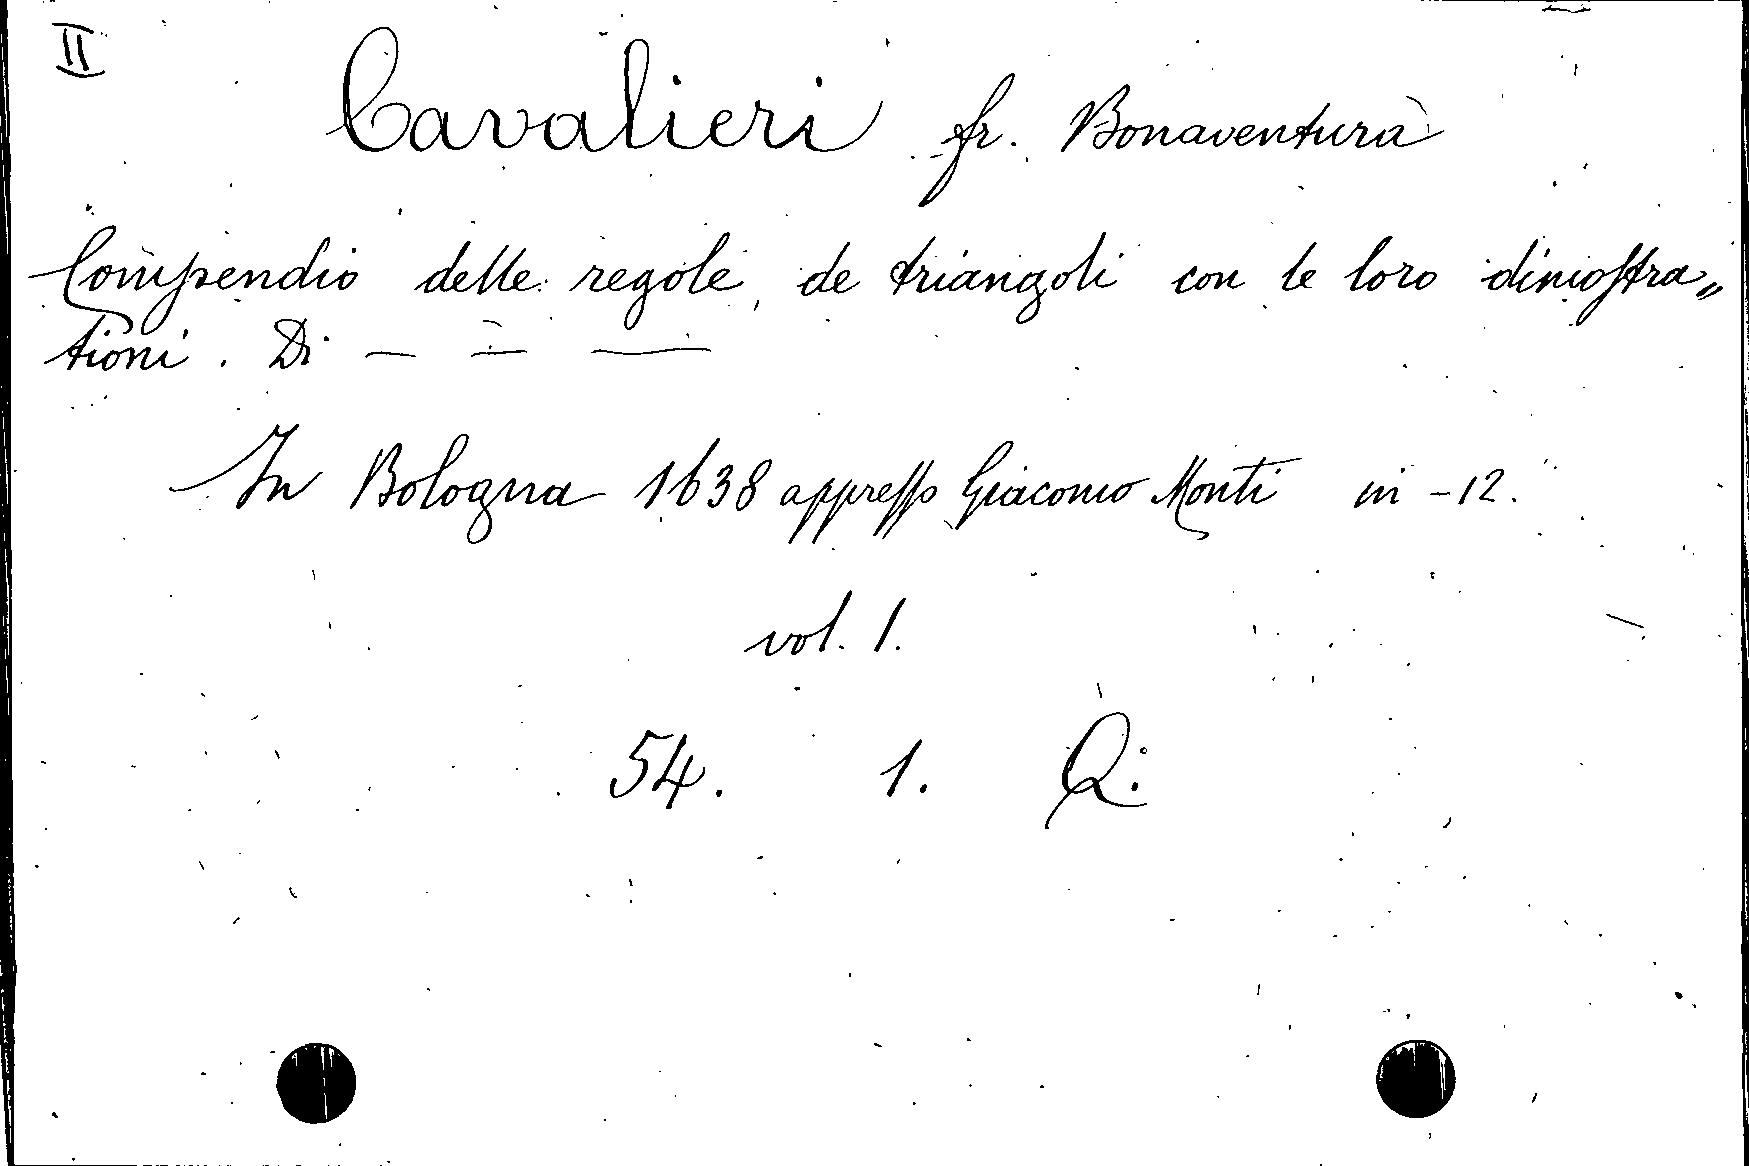 II
Cavalieri fr. Bonaventura
Compendio delle regole de triangoli con le loro dimostra„
tioni. Di — — —
In Bologna 1638 appresso Giacomo Monti in -12.
vol. 1.
54. 1. Q.